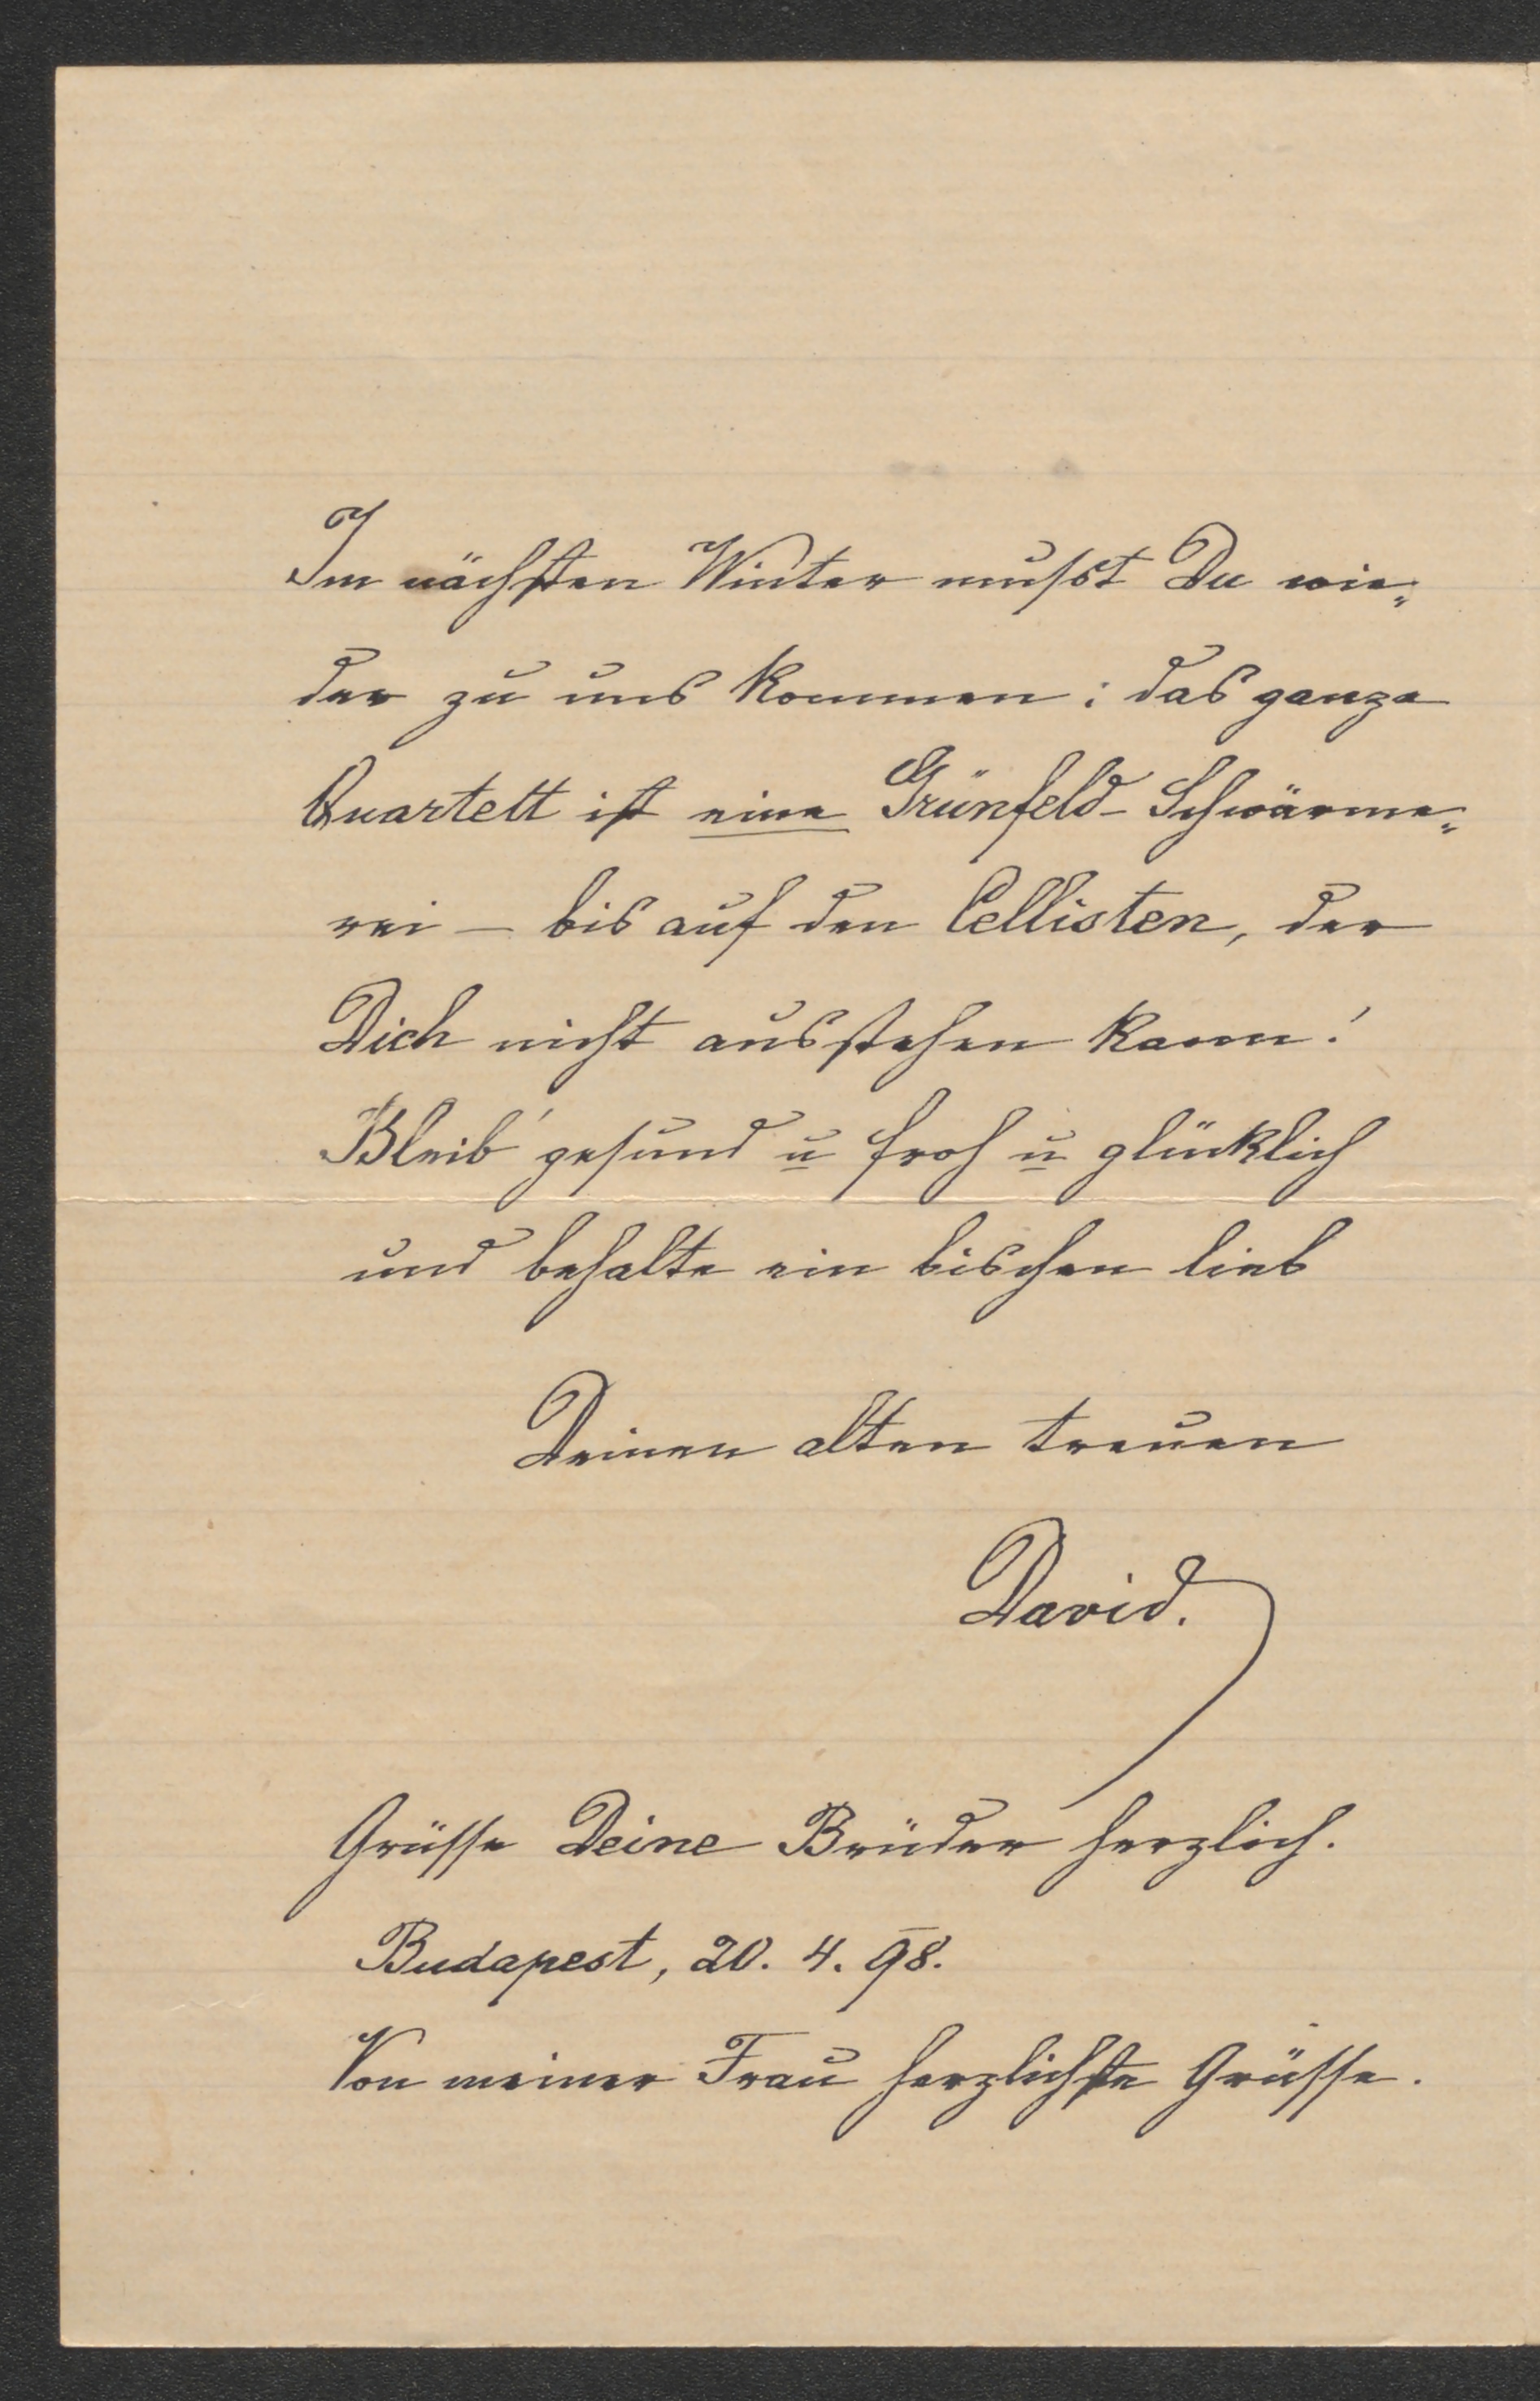 Im nächsten Winter mußt Du wie=
der zu uns kommen; das ganze
Quartett ist eine Grünfeld-Schwärme=
rei – bis auf den Cellisten, der
Dich nicht ausstehen kann!
Bleib' gesund u froh u glücklich
und behalte ein bischen lieb
Deinen alten treuen
David.
Grüsse Deine Brüder herzlich.
Budapest, 20. 4. 98.
Von meiner Frau herzlichste Grüsse.